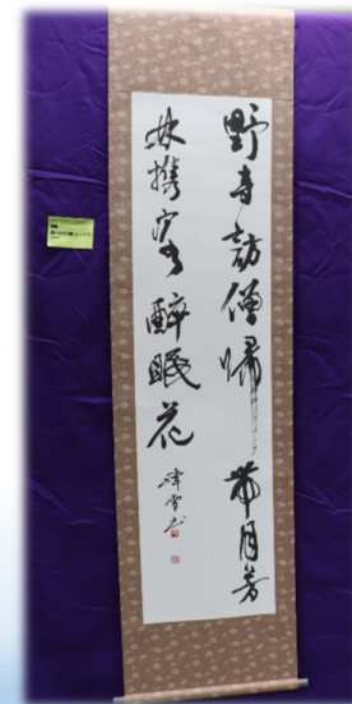 野寺訪僧帰帯月芳
林携客酔眠花